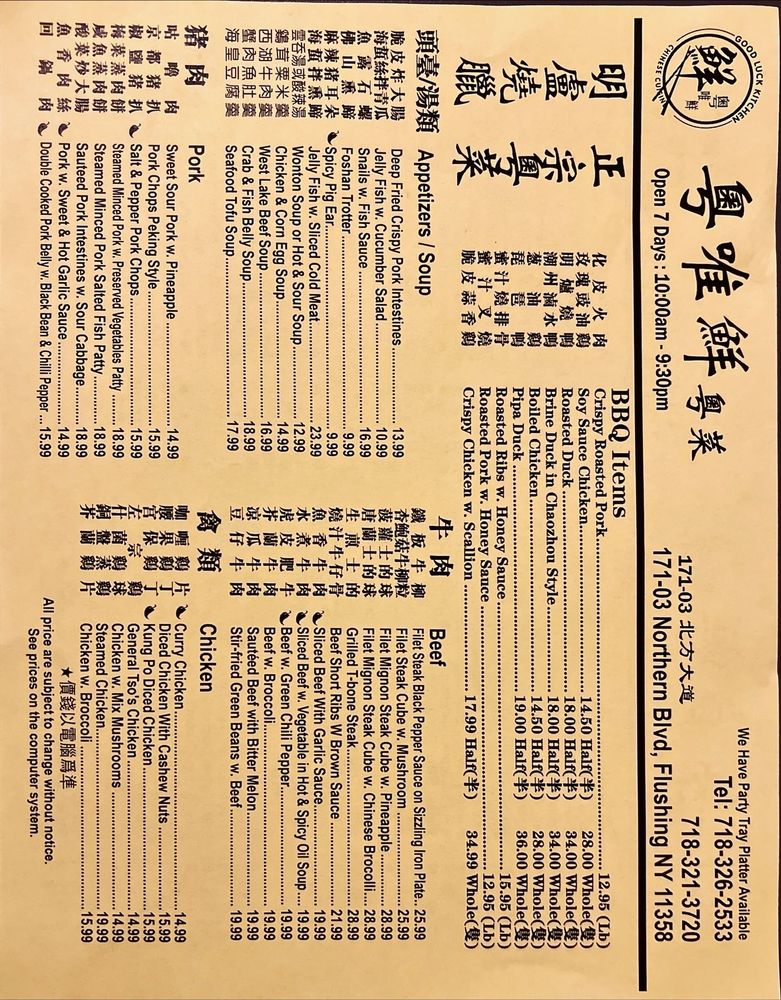 GOOD LUCK KITCHEN
鮮
粵唯鮮
CHINESE CUISINE
粵唯鮮 粵菜
Open 7 Days : 10:00am - 9:30pm
We Have Party Tray Platter Available
Tel: 718-326-2533
718-321-3720
171-03 北方大道
171-03 Northern Blvd, Flushing NY 11358
明爐燒臘
正宗粵菜
BBQ Items
化皮火肉 Crispy Roasted Pork 12.95 (Lb)
玫瑰豉油鷄 Soy Sauce Chicken 14.50 Half(半) 28.00 Whole(隻)
明爐燒鴨 Roasted Duck 18.00 Half(半) 34.00 Whole(隻)
潮州滷水鴨 Brine Duck in Chaozhou Style 18.00 Half(半) 34.00 Whole(隻)
葱油鷄 Boiled Chicken 14.50 Half(半) 28.00 Whole(隻)
琵琶鴨 Pipa Duck 19.00 Half(半) 36.00 Whole(隻)
蜜汁燒排骨 Roasted Ribs w. Honey Sauce 15.95 (Lb)
蜜汁叉燒 Roasted Pork w. Honey Sauce 12.95 (Lb)
脆皮蒜香鷄 Crispy Chicken w. Scallion 17.99 Half(半) 34.99 Whole(隻)
頭臺湯類 Appetizers / Soup
脆皮炸大腸 Deep Fried Crispy Pork Intestines 13.99
海蜇絲拌青瓜 Jelly Fish w. Cucumber Salad 10.99
魚露石螺 Snails w. Fish Sauce 16.99
佛山燻蹄 Foshan Trotter 9.99
麻辣豬耳朵 Spicy Pig Ear 9.99
海蜇拌燻蹄 Jelly Fish w. Sliced Cold Meat 23.99
雲吞湯或酸辣湯 Wonton Soup or Hot & Sour Soup 12.99
鷄茸粟米羹 Chicken & Corn Egg Soup 14.99
西湖牛肉羹 West Lake Beef Soup 16.99
蟹肉魚肚羹 Crab & Fish Belly Soup 18.99
海皇豆腐羹 Seafood Tofu Soup 17.99
豬肉 Pork
咕嚕肉 Sweet Sour Pork w. Pineapple 14.99
京都豬扒 Pork Chops Peking Style 15.99
椒鹽豬扒 Salt & Pepper Pork Chops 15.99
梅菜蒸肉餅 Steamed Minced Pork w. Preserved Vegetables Patty 18.99
鹹魚蒸肉餅 Steamed Minced Pork Salted Fish Patty 18.99
酸菜炒大腸 Sauteed Pork Intestines w. Sour Cabbage 18.99
魚香肉絲 Pork w. Sweet & Hot Garlic Sauce 14.99
回鍋肉 Double Cooked Pork Belly w. Black Bean & Chilli Pepper 15.99
牛肉 Beef
鐵板牛柳 Filet Steak Black Pepper Sauce on Sizzling Iron Plate 25.99
杏鮑菇牛柳粒 Filet Steak Cube w. Mushroom 25.99
菠蘿士的球 Filet Mignon Steak Cube w. Pineapple 28.99
唐蘭士的球 Filet Mignon Steak Cube w. Chinese Brocolli 28.99
生煎士的 Grilled T-bone Steak 28.99
燒汁牛仔骨 Beef Short Ribs W Brown Sauce 21.99
魚香牛肉 Sliced Beef With Garlic Sauce 19.99
水煮牛肉 Sliced Beef w. Vegetable in Hot & Spicy Oil Soup 19.99
虎皮肥牛 Beef w. Green Chili Pepper 19.99
芥蘭牛肉 Beef w. Broccoli 19.99
凉瓜牛肉 Sautéed Beef with Bitter Melon 19.99
豆仔牛肉 Stir-fried Green Beans w. Beef 19.99
禽類 Chicken
咖喱鷄 Curry Chicken 14.99
腰菓鷄丁 Diced Chicken With Cashew Nuts 15.99
宫保鷄丁 Kung Po Diced Chicken 15.99
左宗鷄 General Tso's Chicken 14.99
什菌鷄球 Chicken w. Mix Mushrooms 14.99
銅盤蒸鷄 Steamed Chicken 19.99
芥蘭鷄片 Chicken w. Broccoli 15.99
★價錢以電腦爲准
All price are subject to change without notice.
See prices on the computer system.